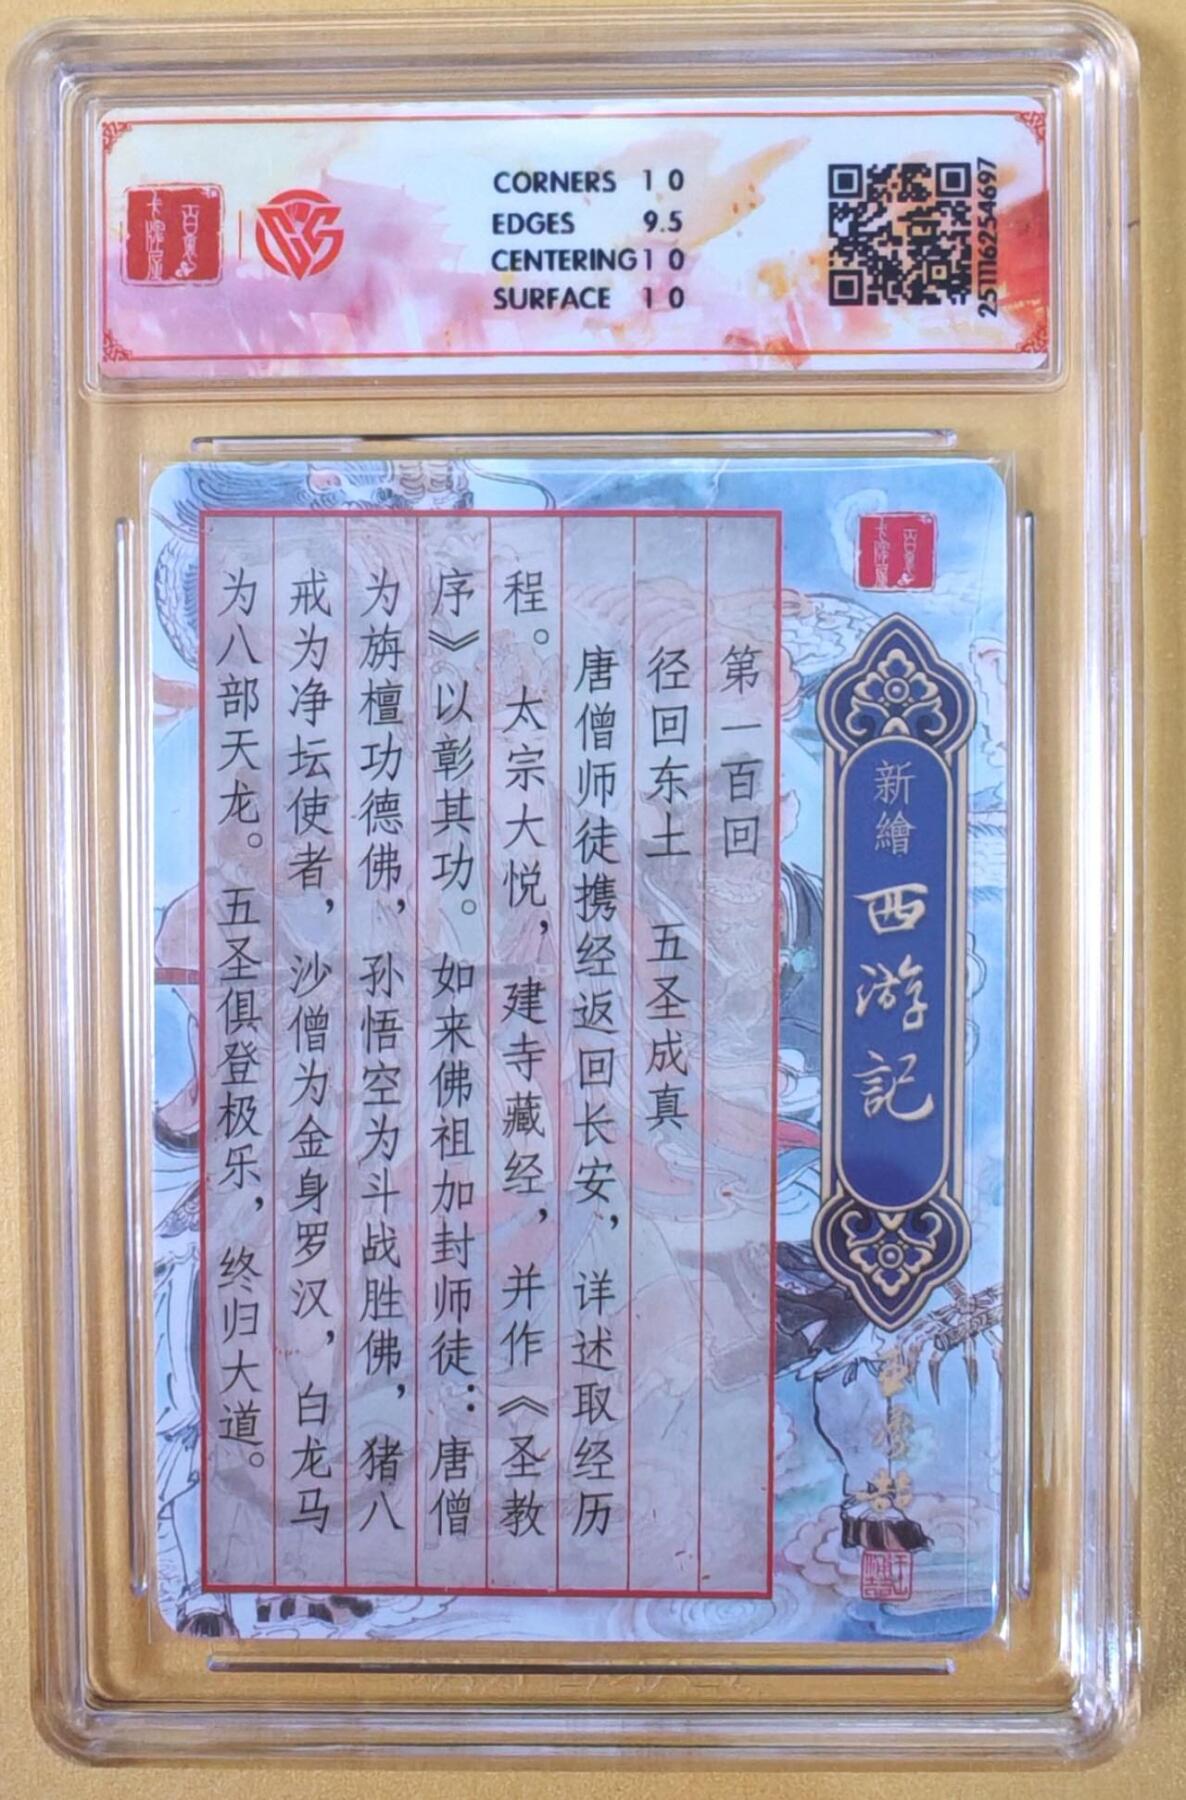 百熹
卡牌屋
CORNERS 10
EDGES 9.5
CENTERING 10
SURFACE 10
251111162254697
新繪
西游記
第一百回
径回东土 五圣成真
唐僧师徒携经返回长安，详述取经历
程。太宗大悦，建寺藏经，并作《圣教
序》以彰其功。如来佛祖加封师徒：唐僧
为旃檀功德佛，孙悟空为斗战胜佛，猪八
戒为净坛使者，沙僧为金身罗汉，白龙马
为八部天龙。五圣俱登极乐，终归大道。